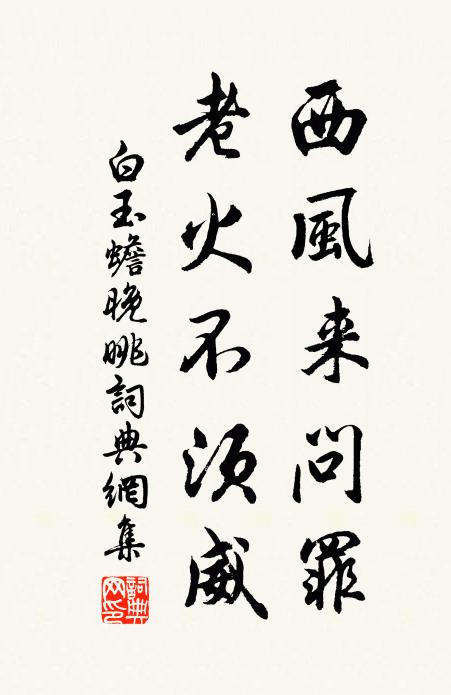 西風来問罪
老火不須威
白玉蟾晚眺詞典網集
詞典網印